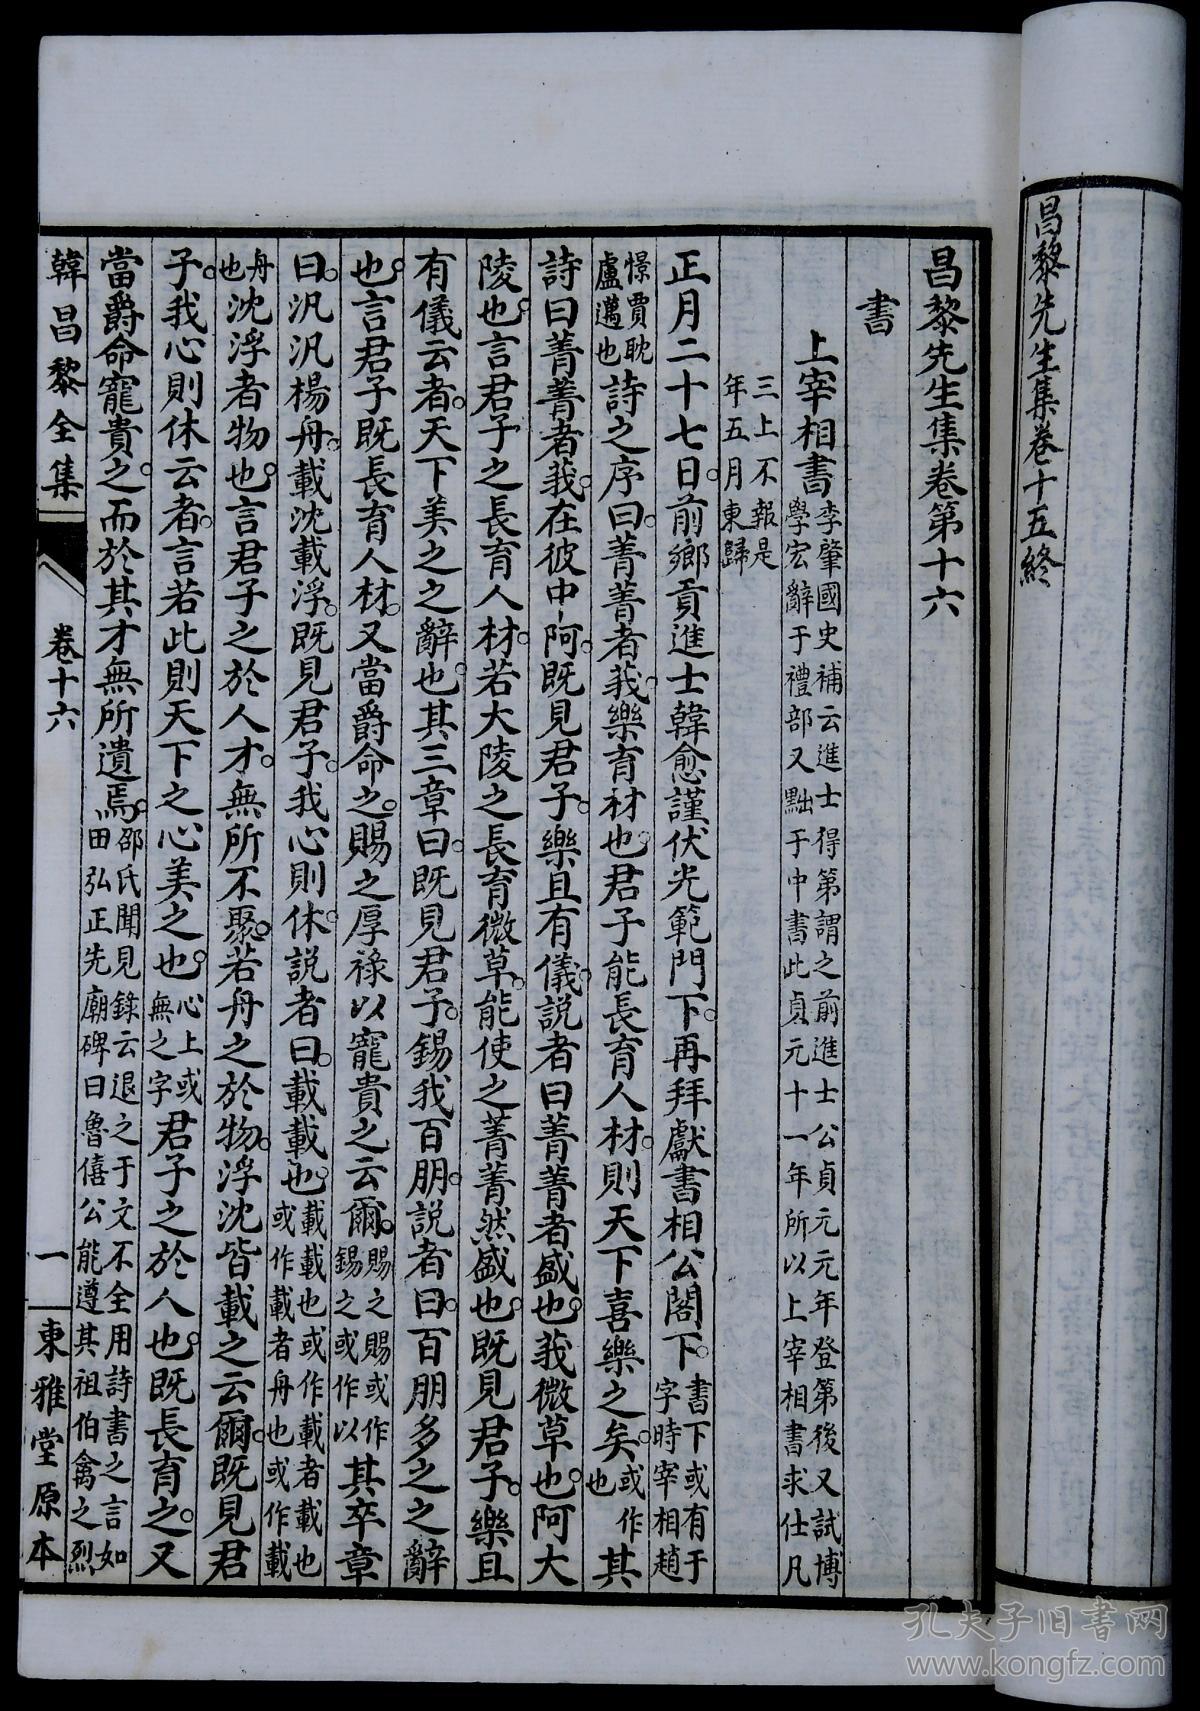 昌黎先生集卷十五終
昌黎先生集卷第十六
書
上宰相書李肇國史補云進士得第謂之前進士公貞元元年登第後又試博
學宏辭于禮部又黜于中書此貞元十一年所以上宰相書求仕凡
三上不報是
年五月東歸
正月二十七日前鄉貢進士韓愈謹伏光範門下再拜獻書相公閣下書下或有于
字時宰相趙
憬賈耽
盧邁也詩之序曰菁菁者莪樂育材也君子能長育人材則天下喜樂之矣或作
也其
詩曰菁菁者莪在彼中阿既見君子樂且有儀説者曰菁菁者盛也莪微草也阿大
陵也言君子之長育人材若大陵之長育微草能使之菁菁然盛也既見君子樂且
有儀云者天下美之之辭也其三章曰既見君子錫我百朋説者曰百朋多之之辭
也言君子既長育人材又當爵命之賜之厚祿以寵貴之云爾賜之賜或作
錫之或作以其卒章
曰汎汎楊舟載沈載浮既見君子我心則休説者曰載載也載載也或作載者載也
或作載者舟也或作載
舟
也沈浮者物也言君子之於人才無所不聚若舟之於物浮沈皆載之云爾既見君
子我心則休云者言若此則天下之心美之也心上或
無之字君子之於人也既長育之又
當爵命寵貴之而於其才無所遺焉邵氏聞見錄云退之于文不全用詩書之言如
田弘正先廟碑曰魯僖公能遵其祖伯禽之烈
韓昌黎全集
卷十六
一
東雅堂原本
孔夫子旧书网
www.kongfz.com